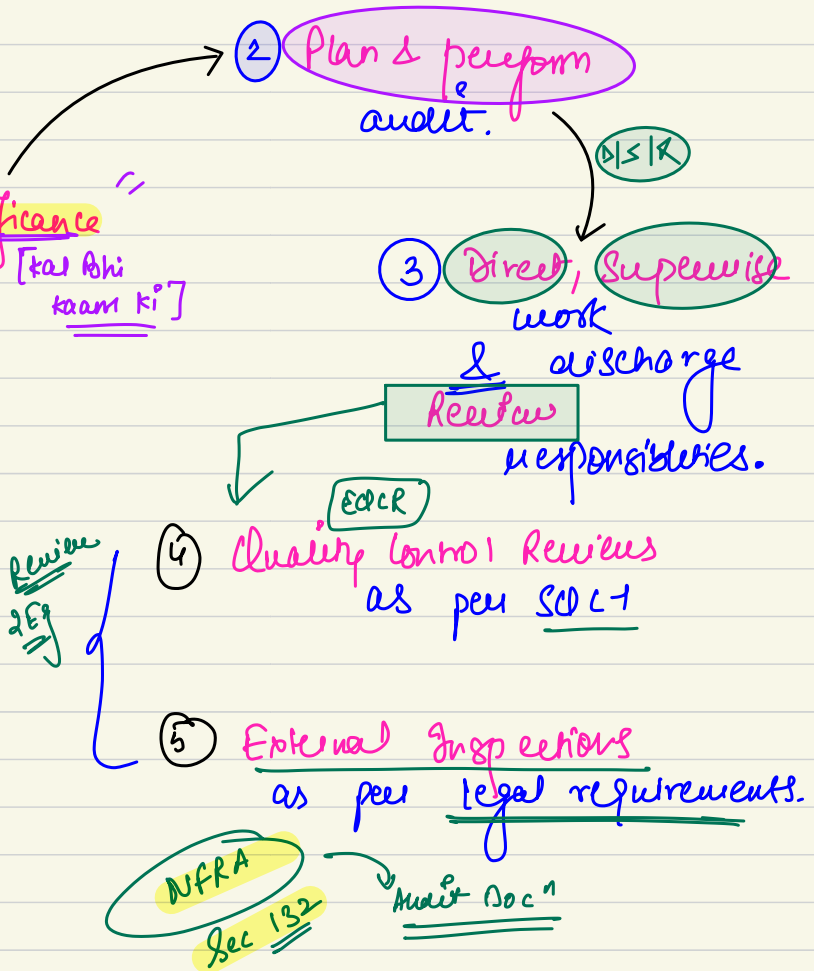 2 Plan & perform
audit.
D|S|R
ficance
[Kal Bhi
kaam ki]
3 Direct, Supervise
work
& discharge
Review
responsibilities.
EQCR
4 Quality Control Reviews
as per SQC-1
Review
2Eg
5 External Inspections
as per legal requirements.
NFRA
Sec 132
Audit Docⁿ